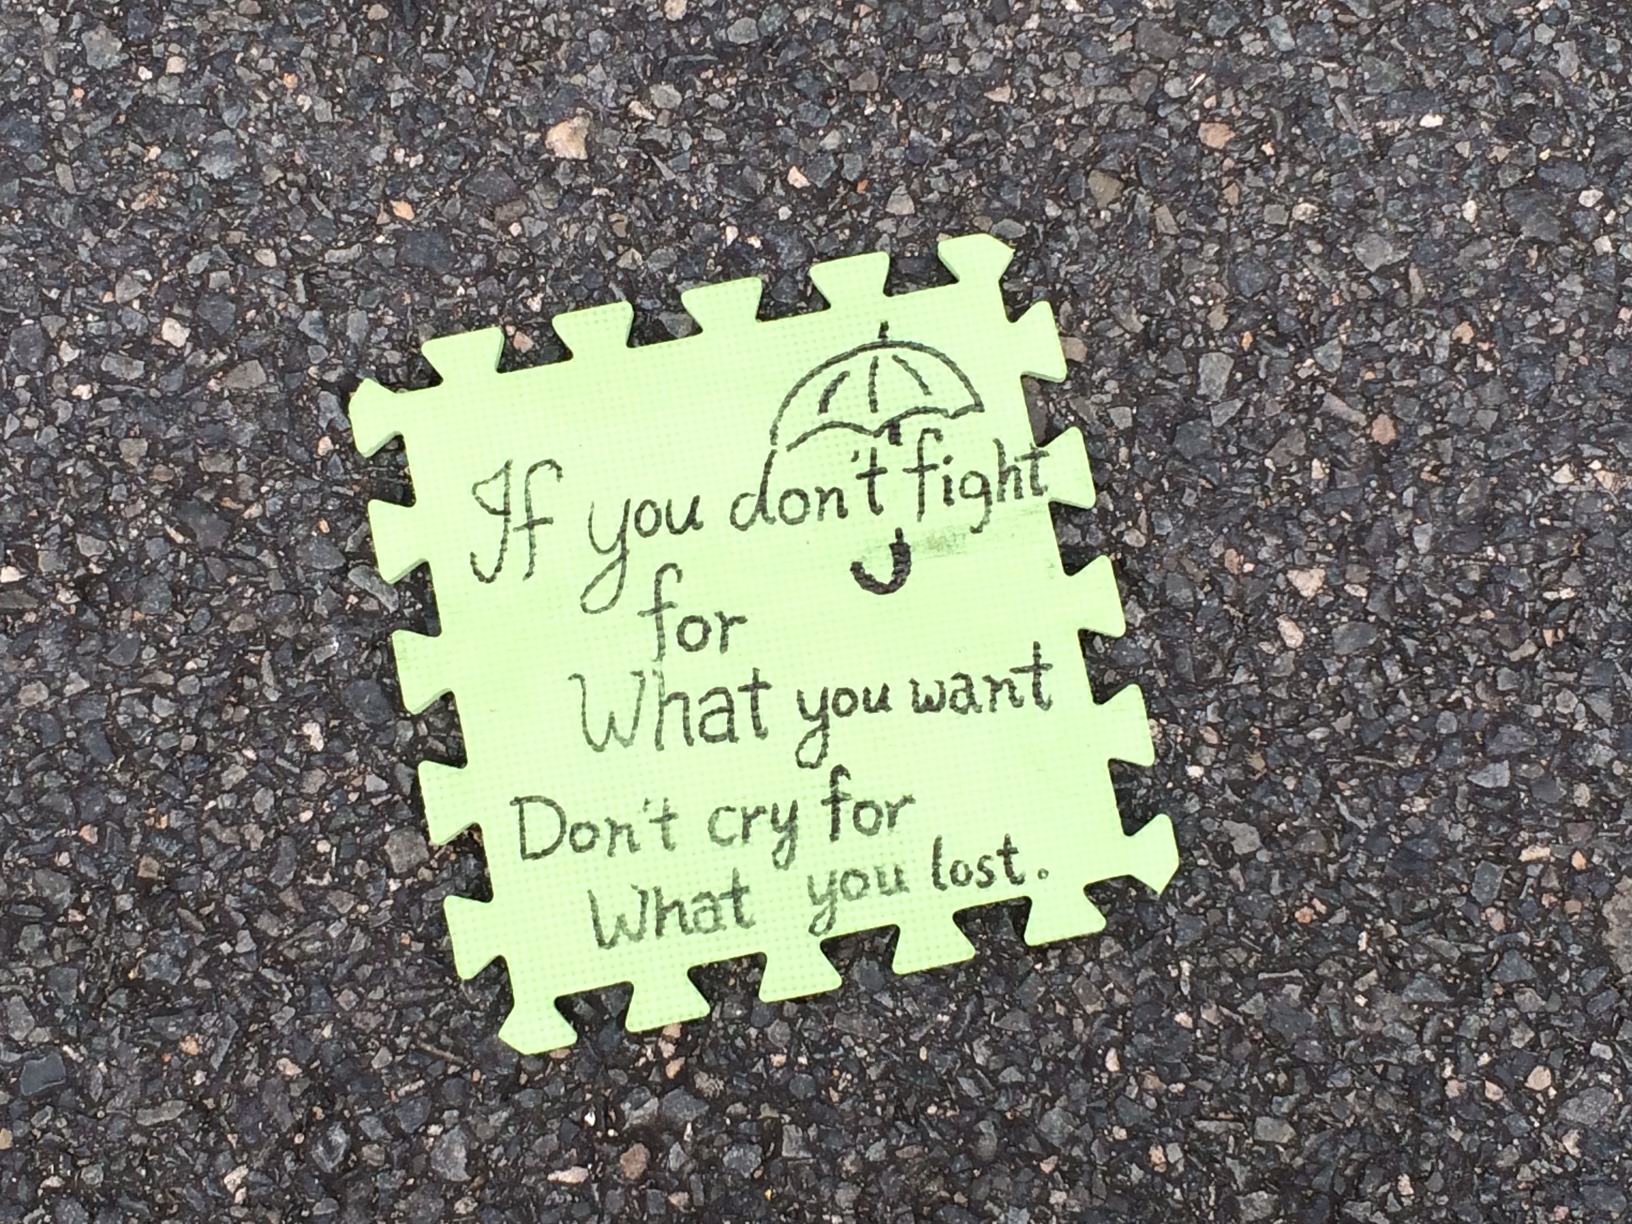 If you don't fight
for
What you want
Don't cry for
What you lost.